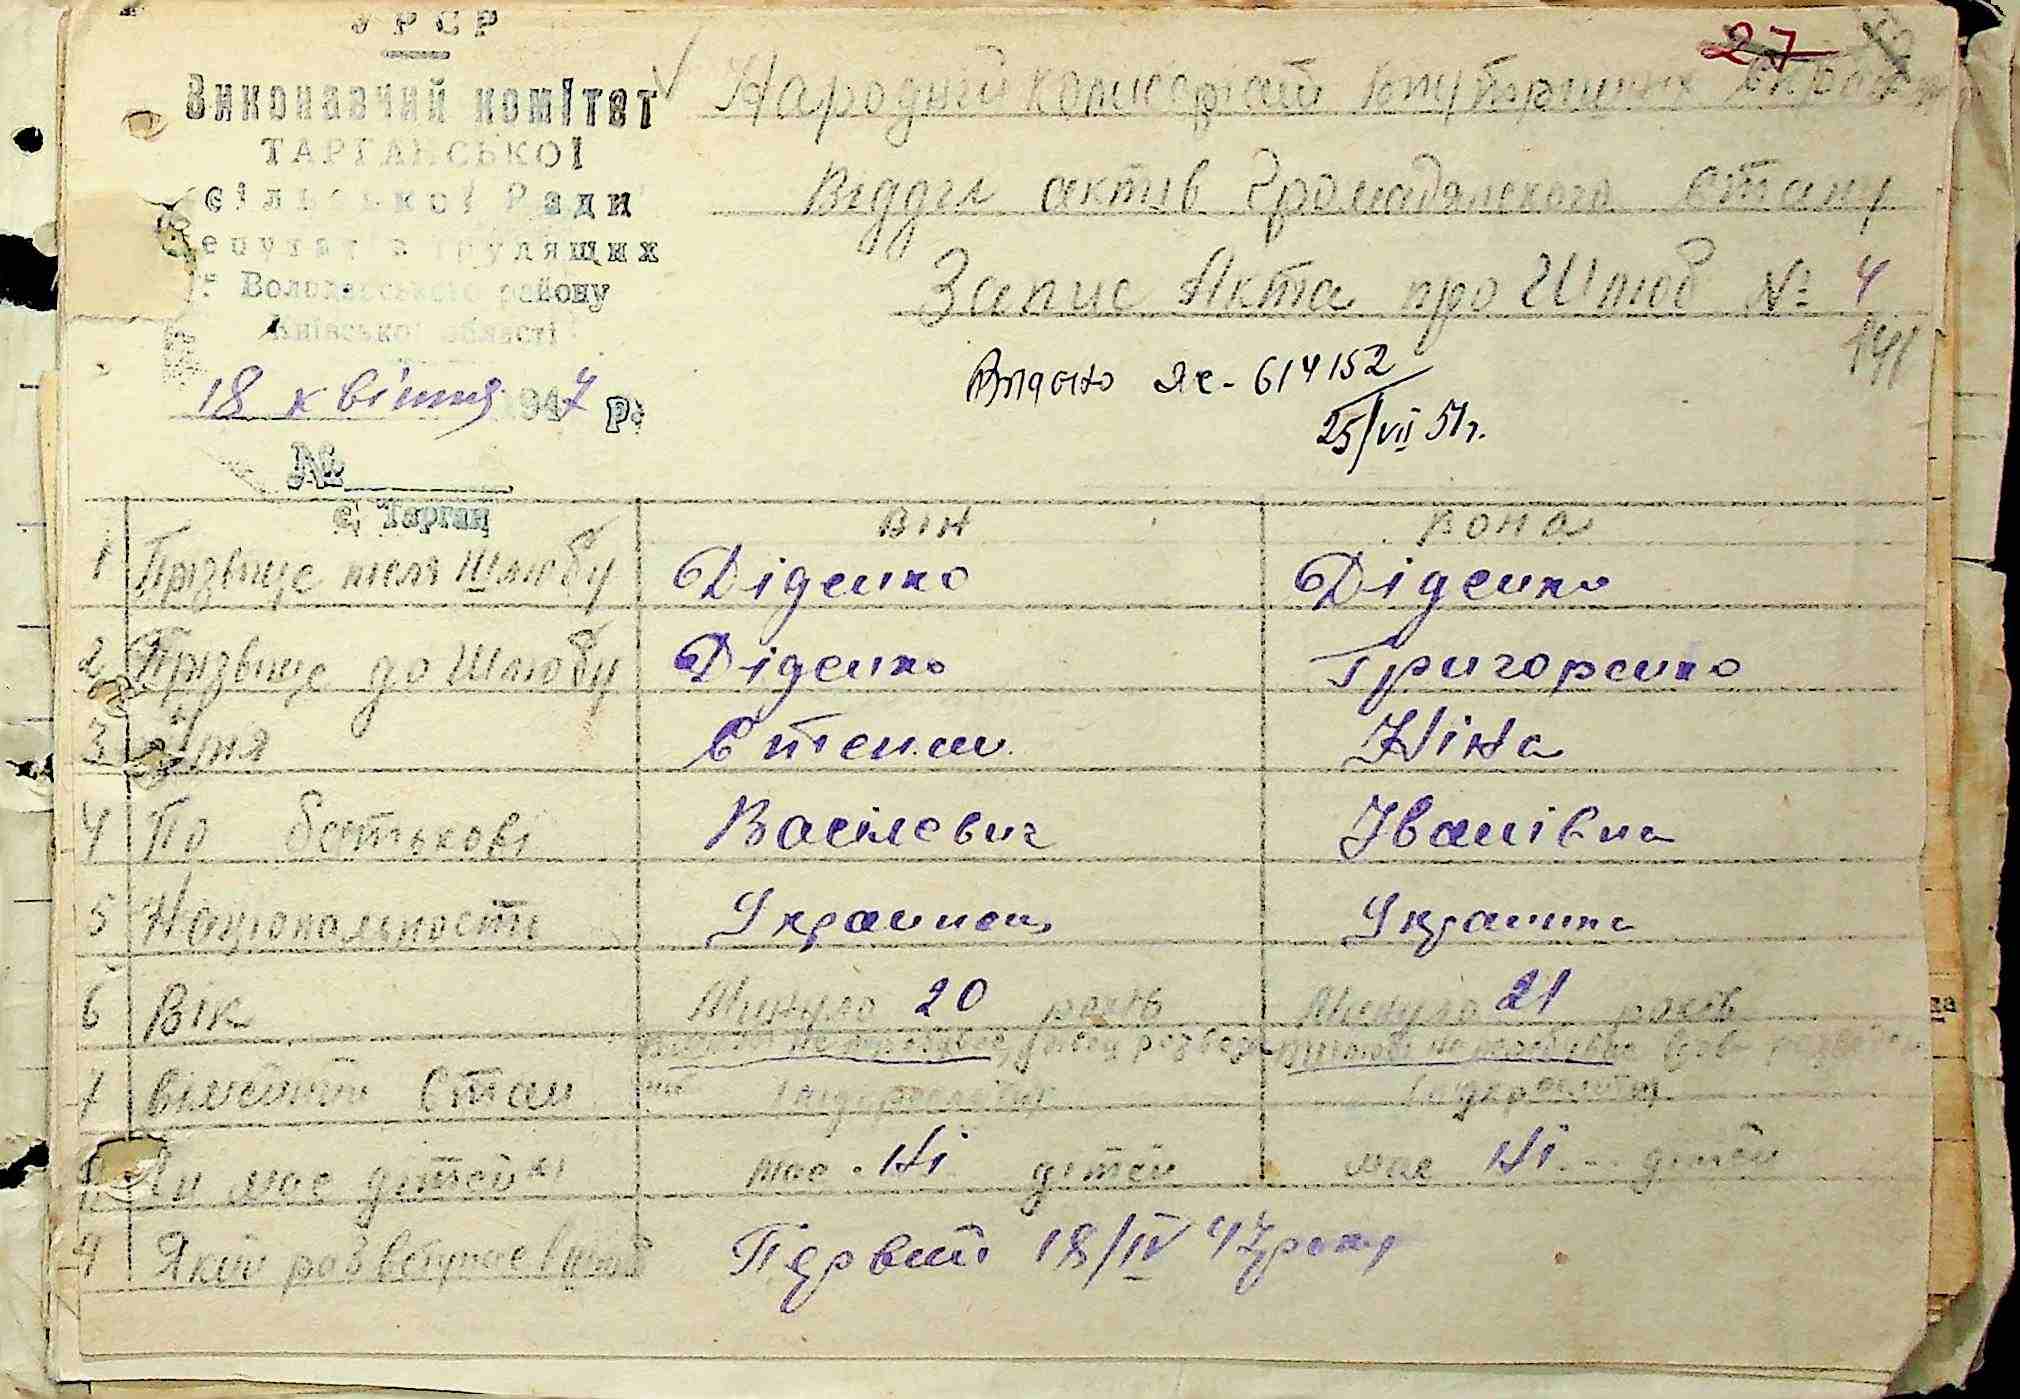 УРСР
Виконавчий комітет
ТАРГАНСЬКОЇ
сільської Ради
депутатів трудящих
Володарського району
Київської області
18 квітня 1947 р.
№
с. Тарган
27
Народній комісаріат внутрішніх справ
Відділ актів Громадянского стану
Запис Акта про Шлюб № 4
Видано ЯЄ-614152
25/VII 51г.
він вона
1 Прізвище після Шлюбу Діденко Діденко
2 Прізвище до Шлюбу Діденко Григоренко
3 Імя Степан Ніна
4 По батькові Василевич Іванівна
5 Національність Украинец Украинка
6 Вік Минуло 20 років Минуло 21 років
7 стан
Чи має дітей має Ні дітей має Ні дітей
9 Який раз вступає в шлюб Первий 18/IV 47 року